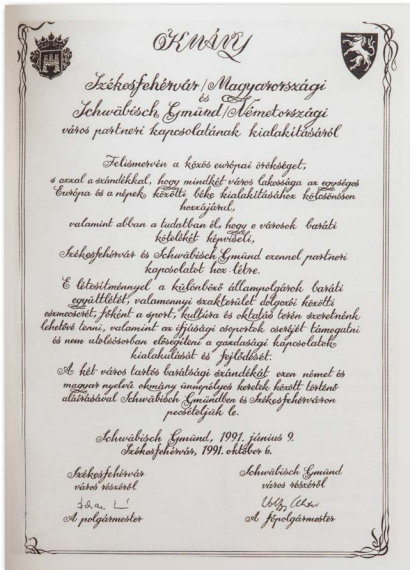 OKMÁNY
Székesfehérvár/Magyarországi
és
Schwäbisch Gmünd/Németországi
város partneri kapcsolatának kialakításáról
Felismervén a közös európai örökséget,
s azzal a szándékkal, hogy mindkét város lakossága az egységes
Európa és a népek közötti béke kialakításához kölcsönösen
hozzájárul,
valamint abban a tudatban él, hogy e városok baráti
kötelékét képviseli,
Székesfehérvár és Schwäbisch Gmünd ezennel partneri
kapcsolatot hoz létre.
E létesítménnyel a különböző állampolgárok baráti
együttlétét, valamennyi szakterület dolgozói közötti
eszmecserét, főként a sport, kultúra és oktatás terén szeretnénk
lehetővé tenni, valamint az ifjúsági csoportok cseréjét támogatni
és nem utolsósorban elősegíteni a gazdasági kapcsolatok
kialakulását és fejlődését.
A két város tartós barátsági szándékát ezen német és
magyar nyelvű okmány ünnepélyes keretek között történő
aláírásával Schwäbisch Gmündben és Székesfehérváron
pecsételjük le.
Schwäbisch Gmünd, 1991. június 9.
Székesfehérvár, 1991. október 6.
Székesfehérvár
város részéről
A polgármester
Schwäbisch Gmünd
város részéről
A főpolgármester